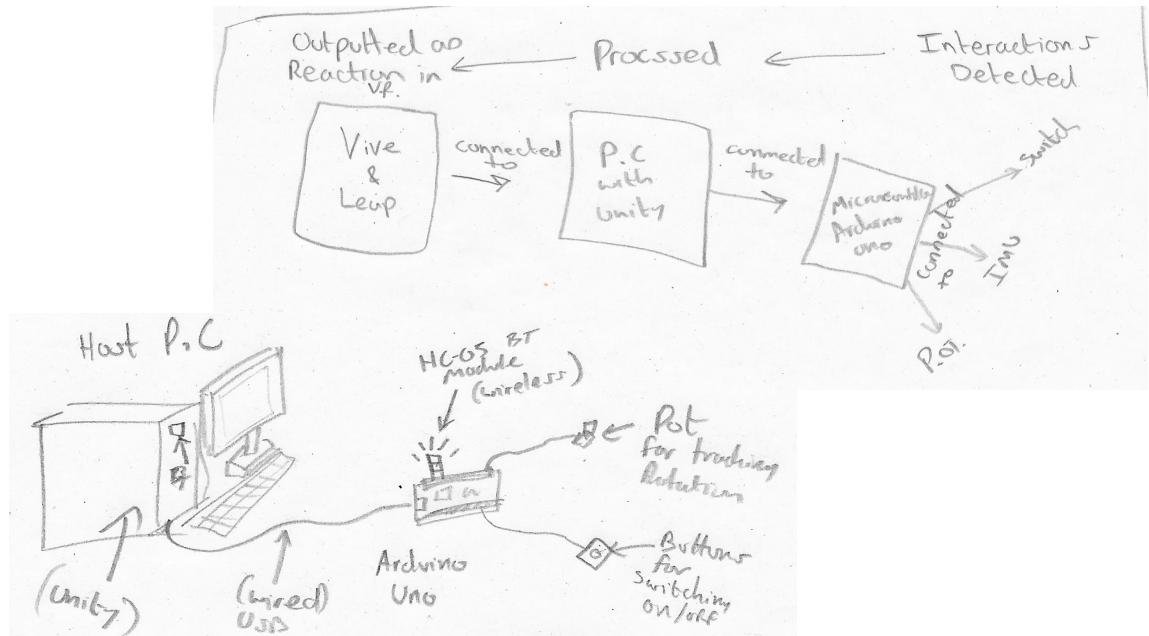 Outputted as
Reaction in
V.R.
Procssed
Interactions
Detected
Vive
&
Leap
connected
to
P.C
with
Unity
connected
to
Arduino
Uno
connected
to
Switch
IMU
P.O.T.
Host P.C
HC-05 BT
Module
(wireless)
Pot
for tracking
Rotation
Buttons
for
Switching
on/off
Arduino
Uno
(wired)
USB
(Unity)